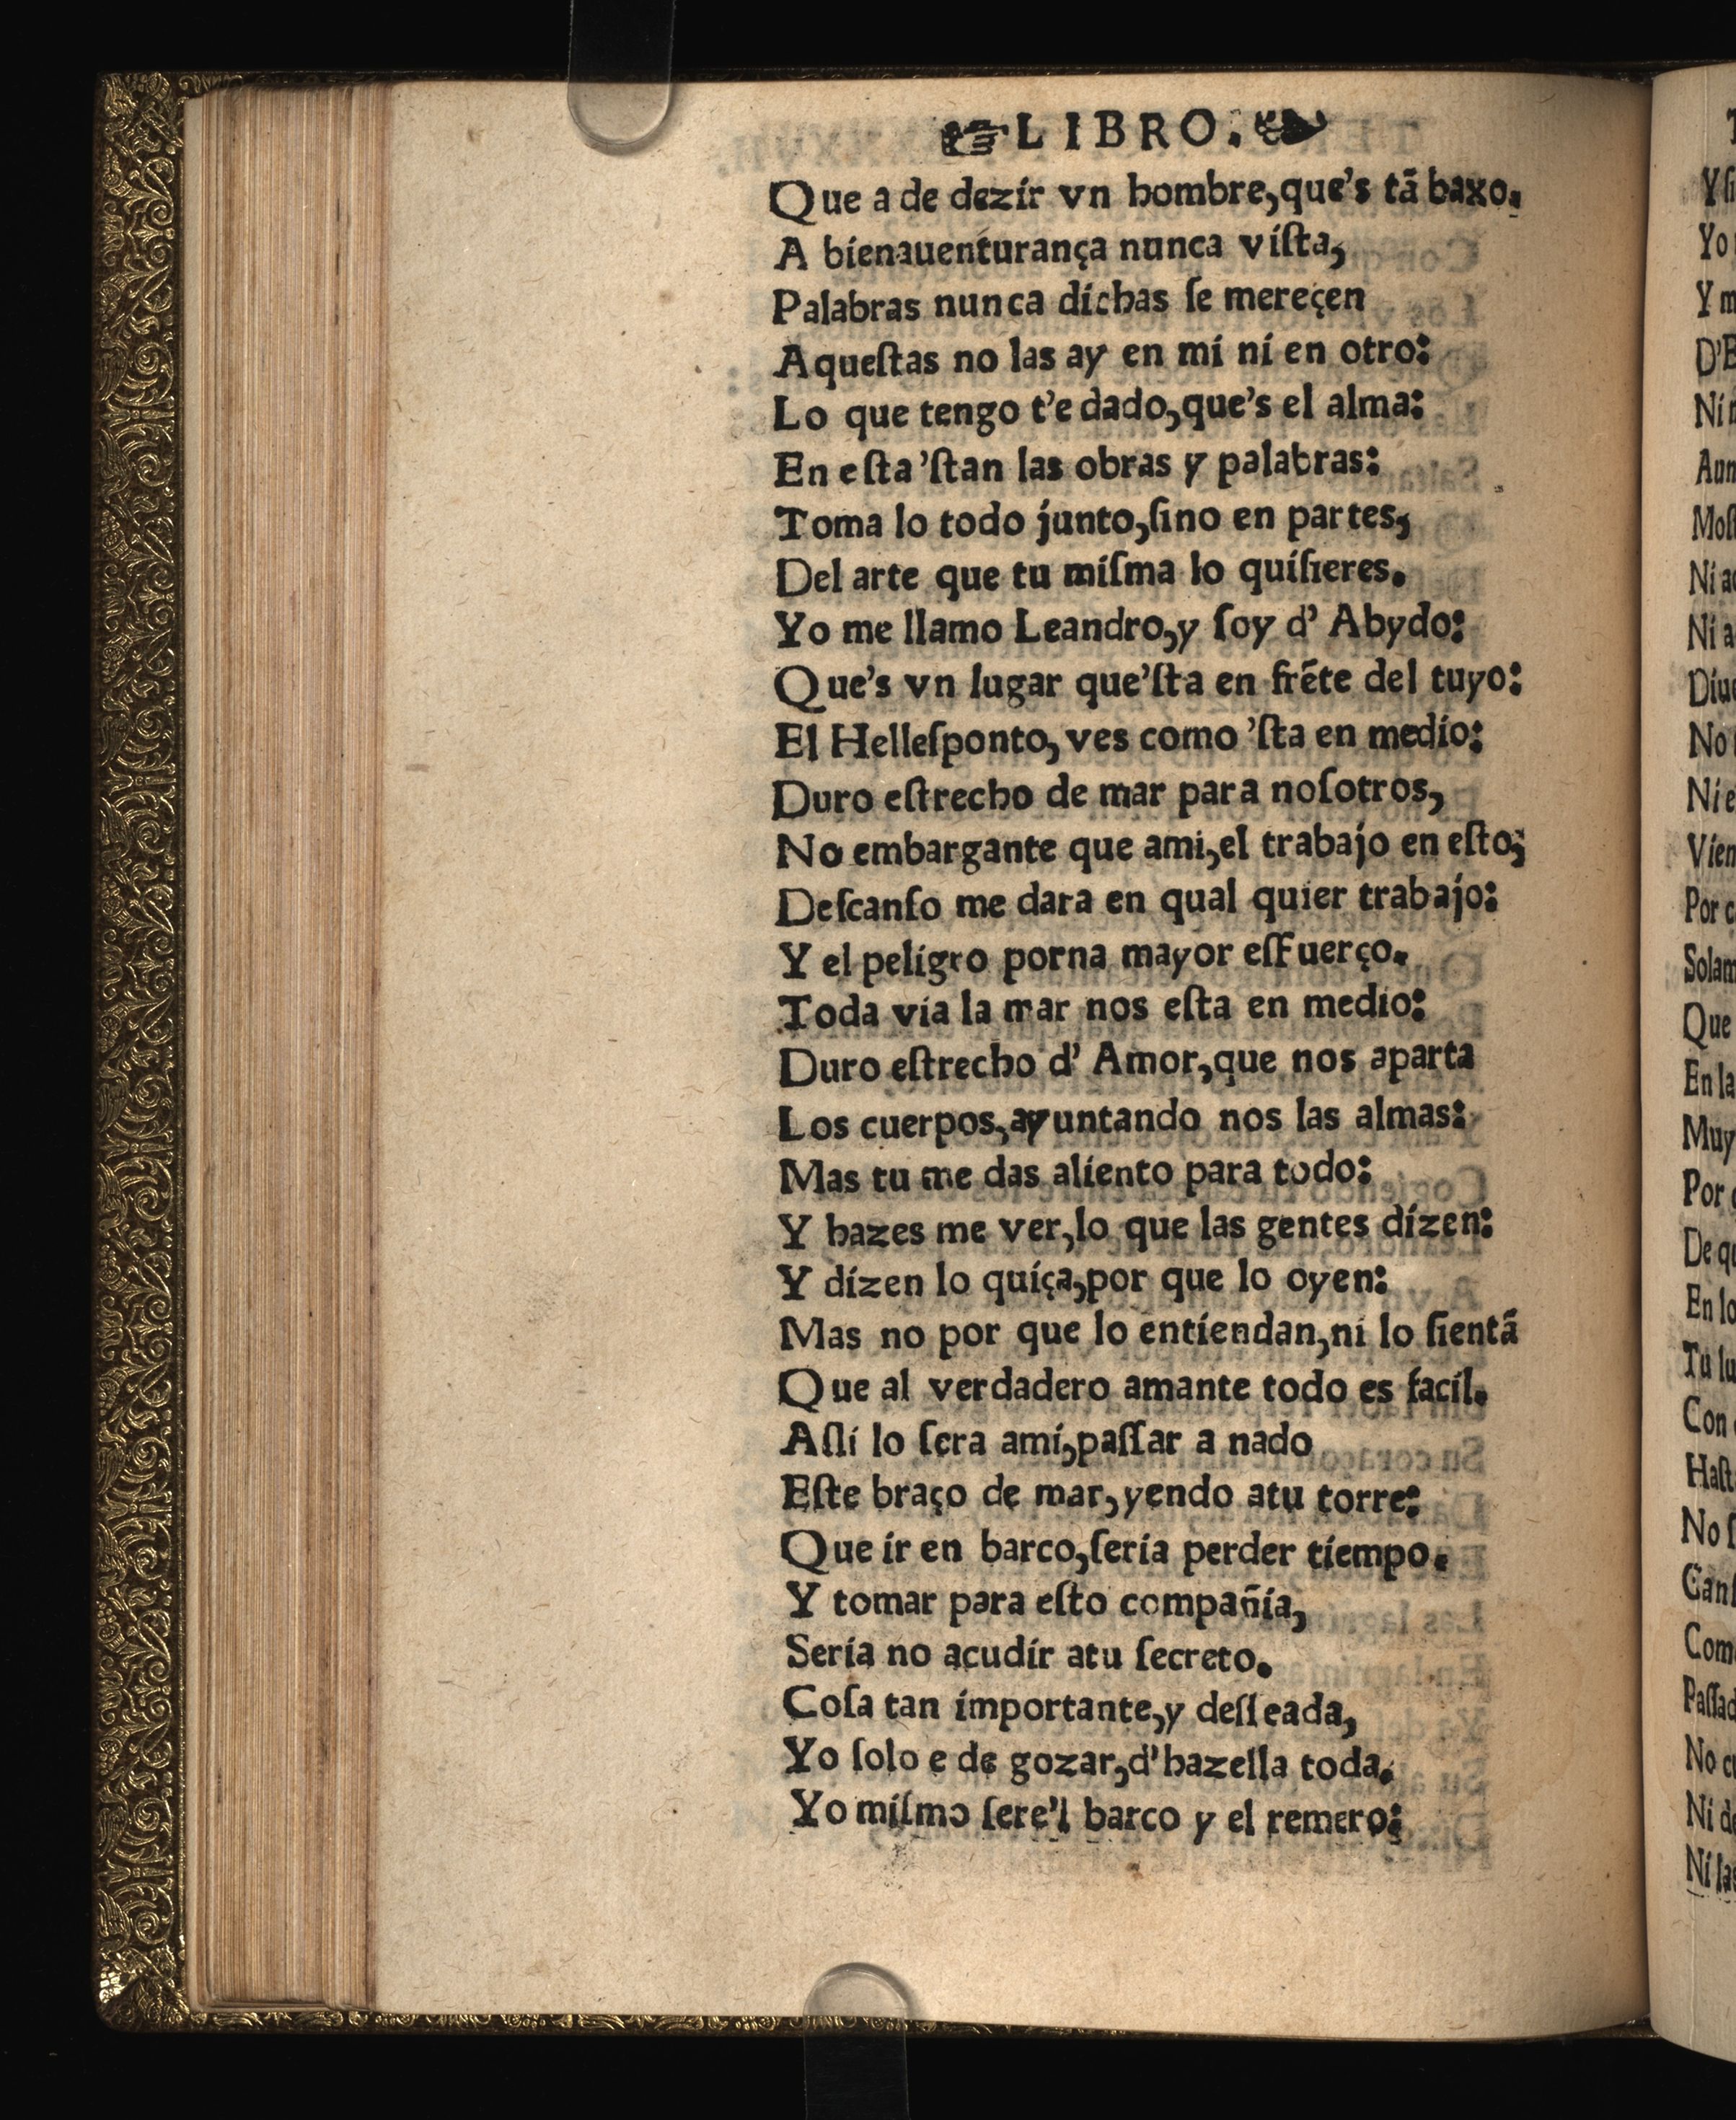 ☞LIBRO.☙
Que a de dezir vn hombre,que's tã baxo.
A bienauenturança nunca viſta,
Palabras nunca dichas ſe mereçen
Aqueſtas no las ay en mi ni en otro:
Lo que tengo t'e dado,que's el alma:
En eſta 'ſtan las obras y palabras:
Toma lo todo junto,ſino en partes,
Del arte que tu miſma lo quiſieres.
Yo me llamo Leandro,y ſoy d' Abydo:
Que's vn lugar que'ſta en frẽte del tuyo:
El Helleſponto, ves como 'ſta en medio:
Duro eſtrecho de mar para noſotros,
No embargante que ami,el trabajo en eſto;
Deſcanſo me dara en qual quier trabajo:
Y el peligro porna mayor eſfuerço.
Toda via la mar nos eſta en medio:
Duro eſtrecho d' Amor,que nos aparta
Los cuerpos,ayuntando nos las almas:
Mas tu me das aliento para todo:
Y hazes me ver,lo que las gentes dizen:
Y dizen lo quiça,por que lo oyen:
Mas no por que lo entiendan,ni lo ſientã
Que al verdadero amante todo es facil.
Aſſi lo ſera ami,paſſar a nado
Eſte braço de mar,yendo atu torre:
Que ir en barco,ſeria perder tiempo.
Y tomar para eſto compañia,
Seria no acudir atu ſecreto.
Coſa tan importante,y deſſeada,
Yo ſolo e de gozar,d'hazella toda.
Yo miſmo ſere'l barco y el remero:
Yo
Y m
Ni
Moſ
Ni a
Ni a
No
Ni e
Vien
Por
Solam
Que
En la
Muy
Por
De qu
En lo
Tu lu
Con
Haſt
No ſ
Canſ
Com
Paſſad
No
Ni de
Ni las